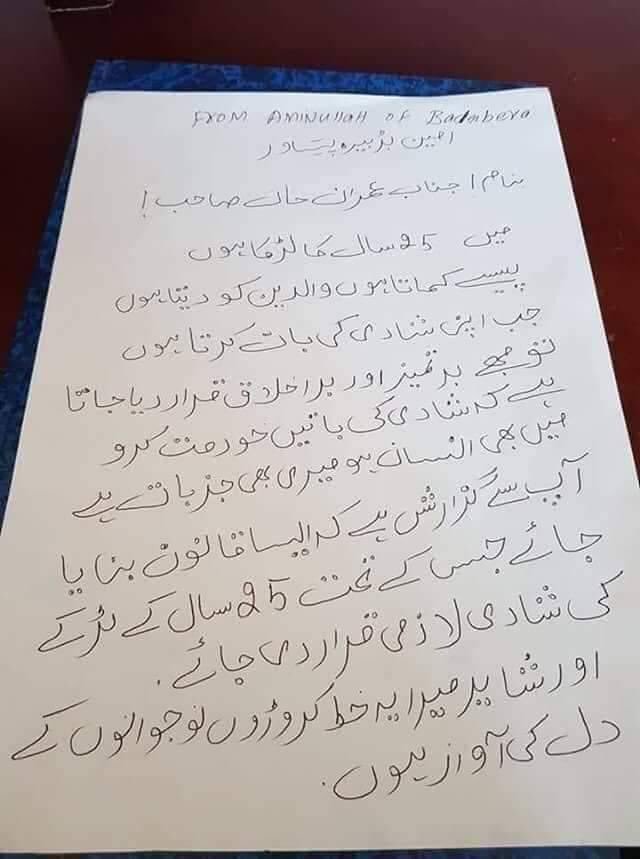 FROM AMINUllAH OF Badabera
امین بڈبیرہ پشاور
بنام! جناب عمران خان صاحب!
میں 25 سال کا لڑکا ہوں
پیسے کماتا ہوں والدین کو دیتا ہوں
جب اپنی شادی کی بات کرتا ہوں
تو مجھے بدتمیز اور بداخلاق قرار دیا جاتا
ہے کہ شادی کی باتیں خود مت کرو
میں بھی انسان ہو میری بھی جذبات ہے
آپ سے گزارش ہے کہ ایسا قانون بنایا
جائے جس کے تحت 25 سال کے لڑکے
کی شادی لازمی قرار دی جائے.
اور شاید میرا یہ خط کروڑوں نوجوانوں کے
دل کی آواز ہوں.